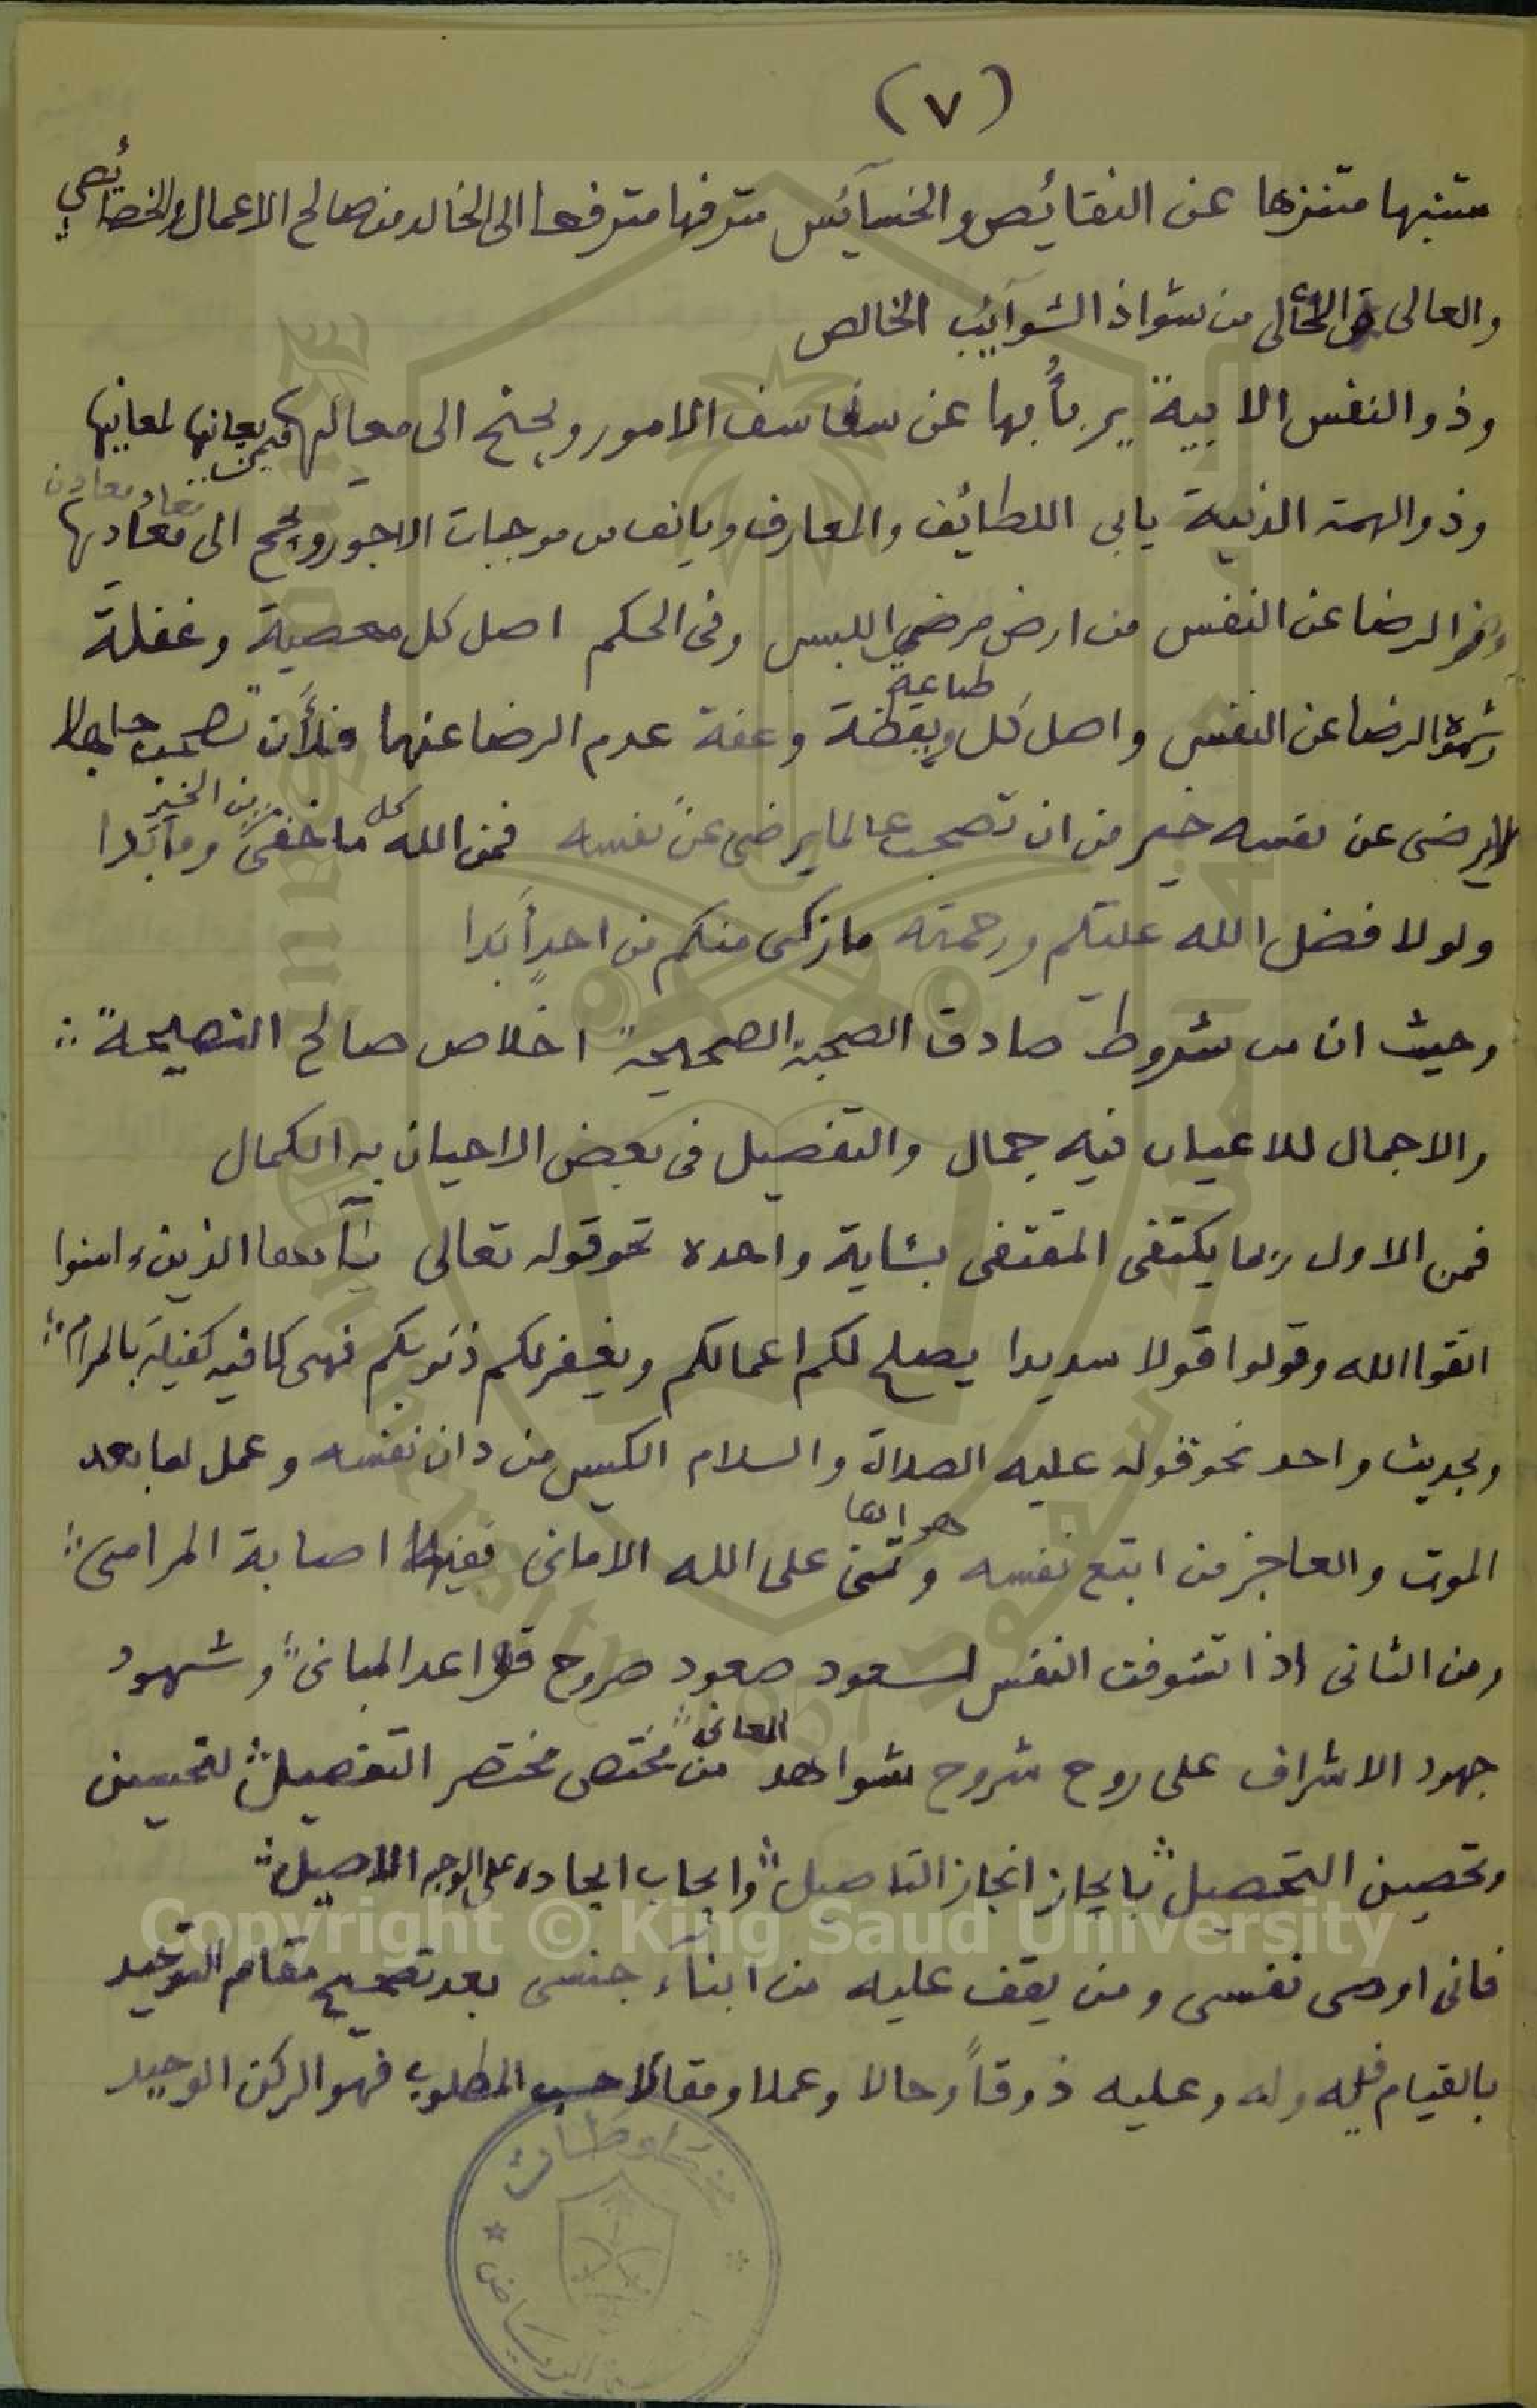 (٧)
متنبها متنزها عن النقائص والخسآئس مترفها مترفعا الى الخالد من صالح الاعمال والخصائص
والعالى الخالى من شواذ الشوآئب الخالص
وذو النفس الابية يربأ بها عن سفاسف الامور ويجنح الى معاليها بمعانيها
وذو الهمة الدنية يابى اللطائف والمعارف ويانف من موجبات الاجور ويجمح الى معادنها
الرضا عن النفس من ارض مرضي اللبس وفى الحكم اصل كل معصية وغفلة
وشهوة الرضا عن النفس واصل كل طاعة ويقظة وعفة عدم الرضا عنها فلأن تصحب جاهلا
لايرضى عن نفسه خير من ان تصحب عالما يرضى عن نفسه فمن الله كل ما خفى من الخير وما بدا
ولولا فضل الله عليكم ورحمته ما زكى منكم من احد ابدا
وحيث ان من شروط صادق الصحبة الصحيحة اخلاص صالح النصيحة
والاجمال للاعيان فيه جمال والتفصيل فى بعض الاحيان به الكمال
فمن الاول ربما يكتفى المقتفى بئاية واحده نحو قوله تعالى يآأيها الذين ءامنوا
اتقوا الله وقولوا قولا سديدا يصلح لكم اعمالكم ويغفر لكم ذنوبكم فهى كافيه كفيلة بالمرام
وبحديث واحد نحو قوله عليه الصلاة والسلام الكيس من دان نفسه وعمل لما بعد
الموت والعاجز من اتبع نفسه هواها وتمنى على الله الامانى ففيها اصابة المرامى
ومن الثانى اذا تشوفت النفس لسعود صعود صروح قواعد المبانى وشهود
جهود الاشراف على روح شروح شواهد المعانى من مختص مختصر التفصيل لتحسين
وتحصين التحصيل بايجاز انجاز التاصيل وايجاب ايجاده على الوجه الاصيل
فانى اوصى نفسى ومن يقف عليه من ابنآء جنسى بعد تصحيح مقام التوحيد
بالقيام فيه وله وعليه ذوقاً وحالا وعملا ومقالا حسب المطلوب فهو الركن الوحيد
Copyright © King Saud University